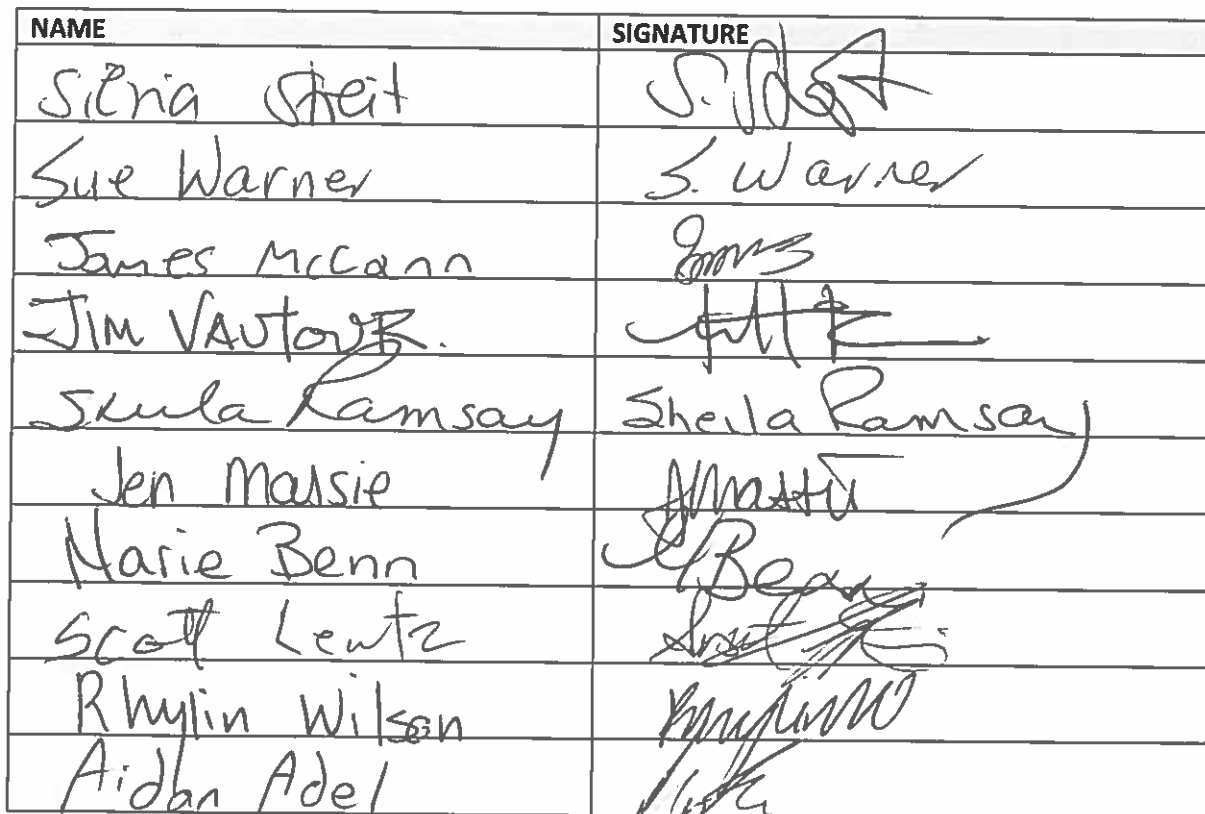 NAME SIGNATURE
Silvia Streit
Sue Warner S. Warner
James McCann
JIM VAUTOUR.
Sheila Ramsay Sheila Ramsay
Jen Massie
Marie Benn M Benn
Scott Lentz
Rhylin Wilson
Aidan Adel